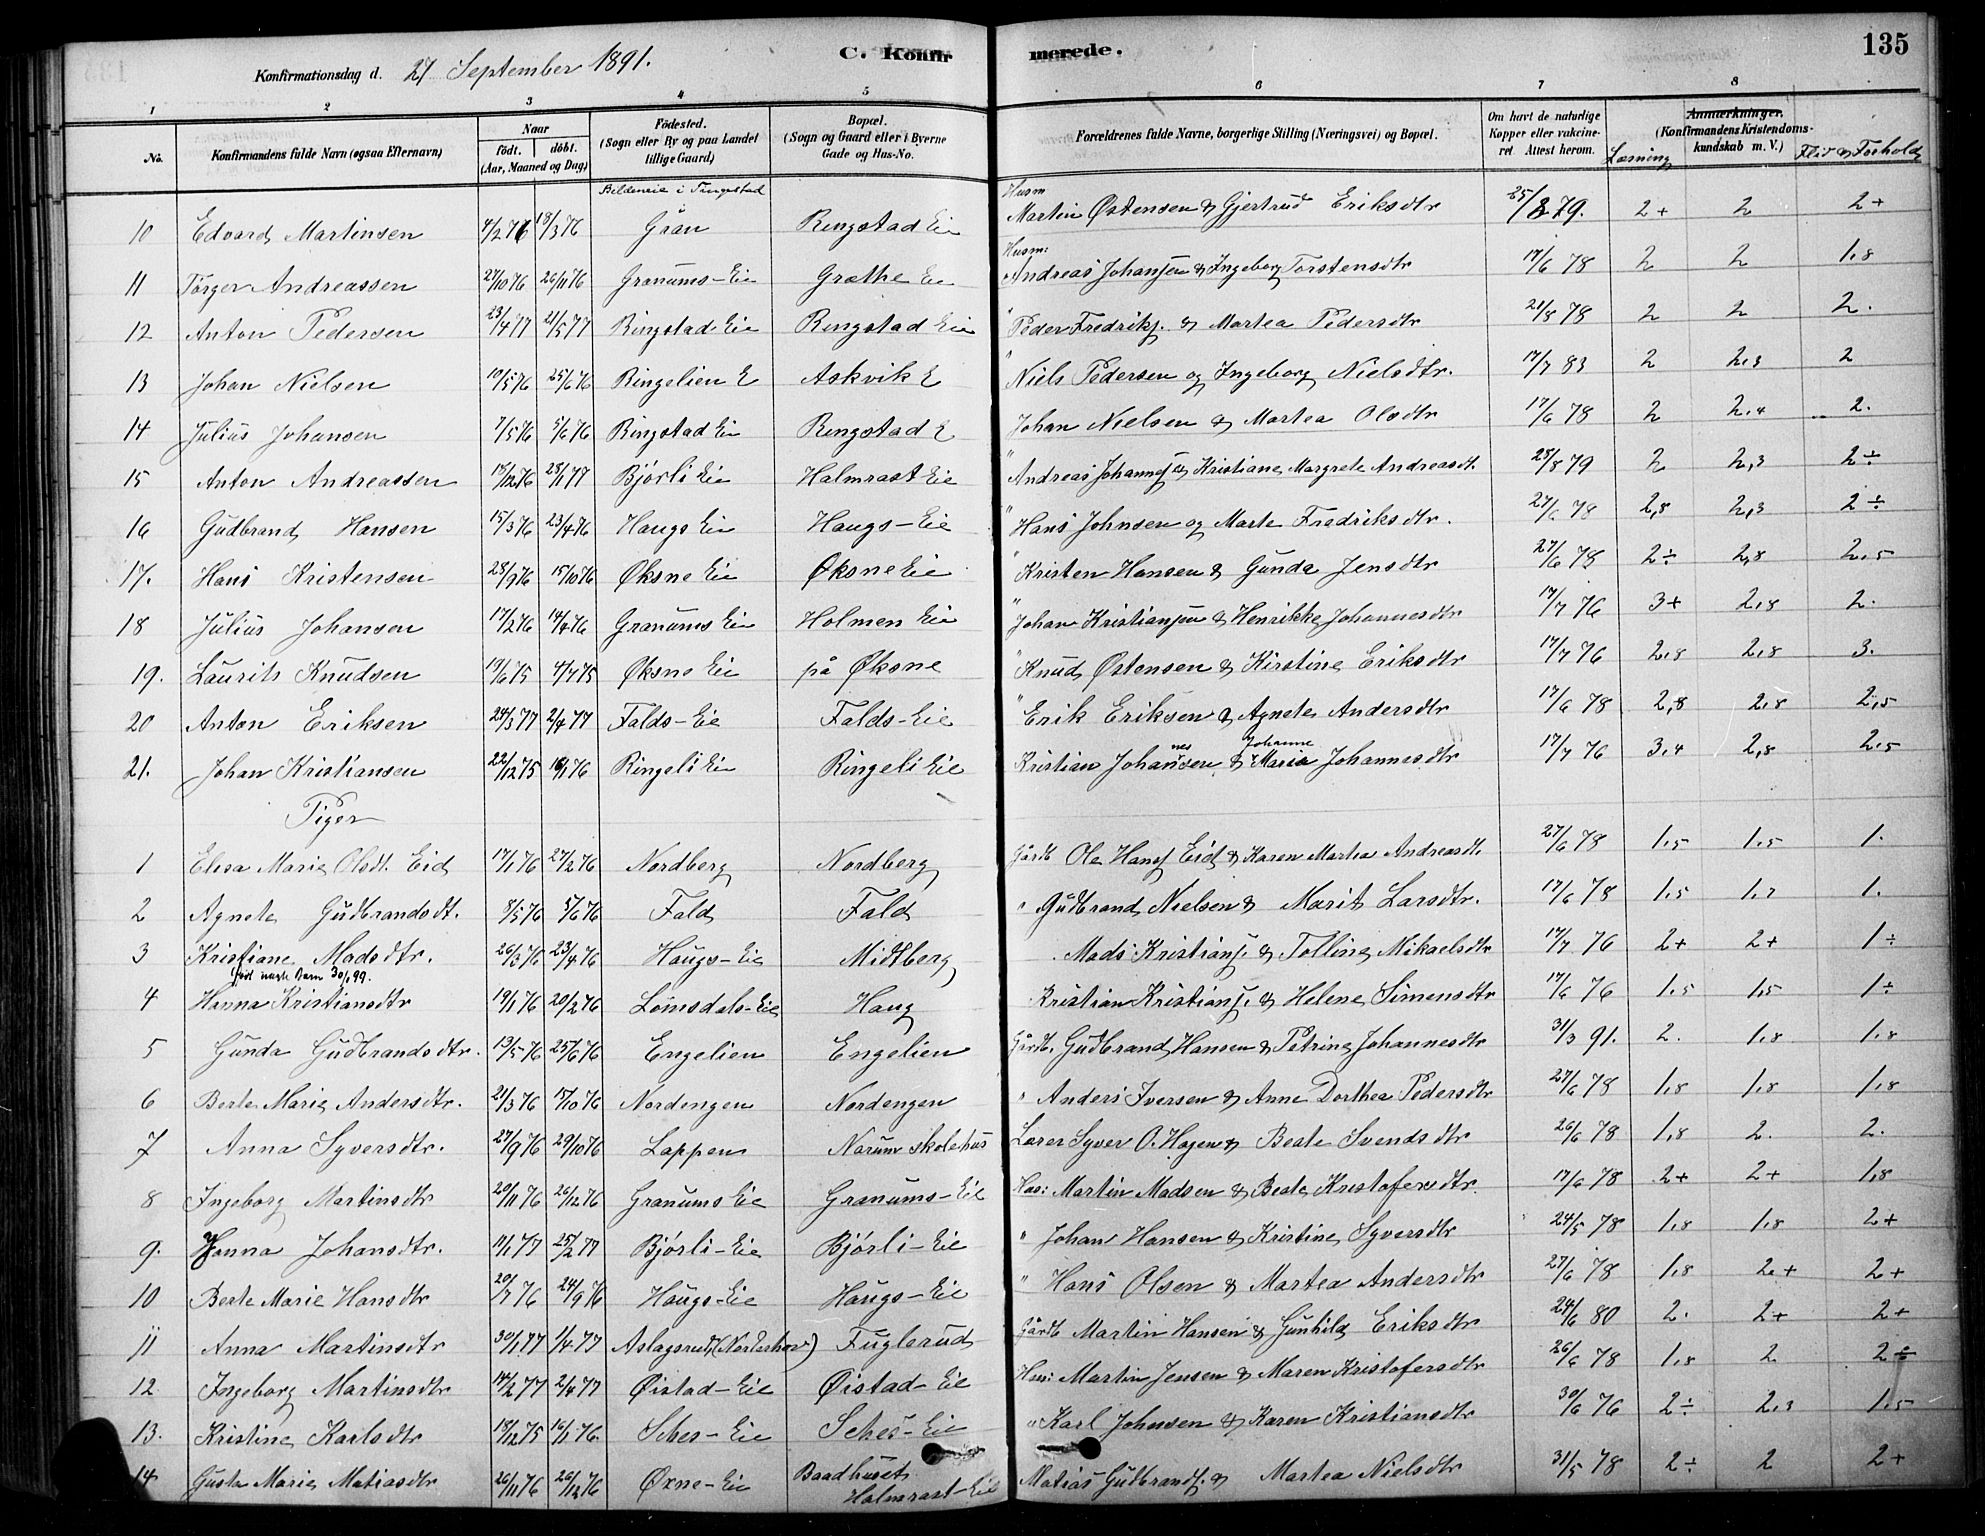 135
C. Konfirmerede.
Konfirmationsdag d. 27 September 1891.
1 2 3 4 5 6 7 8
No. Konfirmandens fulde Navn (ogsaa Efternavn) Naar födt. döbt. (Aar, Maaned og Dag) Födested. (Sogn eller By og paa Landet tillige Gaard) Bopæl. (Sogn og Gaard eller i Byerne Gade og Hus-No. Forældrenes fulde Navne, borgerlige Stilling (Næringsvei) og Bopæl. Om havt de naturlige Kopper eller vakcineret. Attest herom. Anmærkninger. (Konfirmandens Kristendomskundskab m. V.) Læsning Flid & Forhold
10 Edvard Martinsen 4/2 76 18/3 76 i Tingelstad Gran Ringstad Eie Husm Martin Østensen & Gjertrud Eriksdtr 25/8 79. 2+ 2 2+
11 Torger Andreassen 27/10 76 26/11 76 Granums-Eie Græthe Eie Husm: Andreas Johansen & Ingeborg Torstensdtr 17/6 78 2 2 1,8
12 Anton Pedersen 23/4 77 21/5 77 Ringstad Eie Ringstad Eie " Peder Fredriks. & Martea Pedersdtr 21/8 78 2 2 2.
13 Johan Nielsen 10/5 76 25/6 76 Ringelien E Askvik E " Niels Pedersen og Ingeborg Nielsdtr. 17/7 83 2 2,3 2
14 Julius Johansen 7/5 76 5/6 76 Ringstad Eie Ringstad E Johan Nielsen & Martea Olsdtr 17/6 78 2 2,4 2.
15 Anton Andreassen 15/12 76 28/1 77 Bjørli Eie Halmrast Eie " Andreas Johannes. & Kristiane Margrete Andreasdt. 28/8 79 2 2,3 2÷
16 Gudbrand Hansen 15/3 76 23/4 76 Haugs Eie Haugs-Eie " Hans Johnsen og Marte Fredriksdtr. 27/6 78 2,8 2,3 2÷
17. Hans Kristensen 23/9 76 15/10 76 Øksne Eie Øksne Eie " Kristen Hansen & Gunda Jensdtr 27/6 78 2÷ 2,8 2,5
18 Julius Johansen 17/2 76 14/4 76 Granums Eie Holmen Eie " Johan Kristiansen & Henrikke Johannesdtr 17/7 76 3+ 2,8 2.
19. Laurits Knudsen 19/6 75 4/7 75 Øksne Eie på Øksne " Knud Østensen & Kirstine Eriksdtr 17/7 76 2,8 2,8 3.
20 Anton Eriksen 24/3 77 2/4 77 Falds-Eie Falds-Eie " Erik Eriksen & Agnete Andersdtr 17/6 78 2,8 2,8 2,5
21. Johan Kristiansen 22/12 75 16/1 76 Ringeli Eie Ringeli Eie Kristian Johannesen & Johanne Maria Johannesdtr 17/7 76 3,4 2,8 2,5
Piger
1 Elesa Marie Olsdt. Eid 17/1 76 27/2 76 Nordberg Nordberg Gårdb Ole Hans. Eid & Karen Martea Andreasdt. 27/6 78 1,5 1,5 1.
2 Agnete Gudbrandsdt. 8/5 76 5/6 76 Fald Fald " Gudbrand Nielsen & Marit Larsdtr. 17/6 78 1,5 1,7 1.
3 Kristiane Madsdtr. 26/3 76 23/4 76 Haugs-Eie Midtberg Mads Kristians. & Tolline Mikaelsdtr 17/7 76 2+ 2+ 1÷
født uægte Barn 30/1 99.
4 Hanna Kristiansdtr 19/1 76 20/2 76 Lomsdals-Eie Haug Kristian Kristians. & Helene Simensdtr 17/6 76 1,5 1,5 1÷
5 Gunda Gudbrandsdtr. 13/5 76 25/6 76 Engelien Engelien Gårdb. Gudbrand Hansen & Petrine Johannesdtr 31/3 91. 2. 1,8 1,8
6 Berte Marie Andersdtr. 21/3 76 15/10 76 Nordengen Nordengen " Anders Iversen & Anne Dorthea Pedersdtr 27/6 78 1,8 1,8 1,8
7 Anna Syversdtr. 27/9 76 29/10 76 Lappen Narum skolehus Lærer Syver O. Hagen & Beate Svendsdtr 26/6 78 1,8 2. 2.
8 Ingeborg Martinsdtr 20/11 76 26/12 76 Granums Eie Granums-Eie Hus: Martin Madsen & Beate Kristofersdtr. 17/6 78 2+ 2+ 1,8
9. Hanna Johansdtr. 11/1 77 25/2 77 Bjørli-Eie Bjørli-Eie " Johan Hansen & Kristine Syversdtr 24/5 78 1,8 1,8 2+
10 Berte Marie Hansdtr 20/7 76 24/9 76 Haugs-Eie Haugs-Eie " Hans Olsen & Martea Andersdtr 27/6 78 1,8 2+ 2+
11 Anna Martinsdtr 30/1 77 1/4 77 Aslagsrud, (Nerlashov) Fuglerud Gårdb Martin Hansen & Gunhild Eriksdtr 24/6 80 2. 2+ 2+
12. Ingeborg Martinsdtr 14/2 77 2/4 77 Øistad-Eie Øistad-Eie Hus: Martin Jensen & Maren Kristofersdtr 26/6 78 1,8 2 2÷
13. Kristine Karlsdtr 18/12 75 16/1 76. Sches-Eie Sches-Eie " Karl Johnsen & Karen Kristiansdtr 30/6 76 2÷ 2,3 1,5
14 Gusta Marie Matiasdtr 26/11 76 26/12 76 Øxne-Eie Baadhuset Halmrast-Eie Matias Gudbrands. & Martea Nielsdtr 31/5 78 2÷ 2 2+